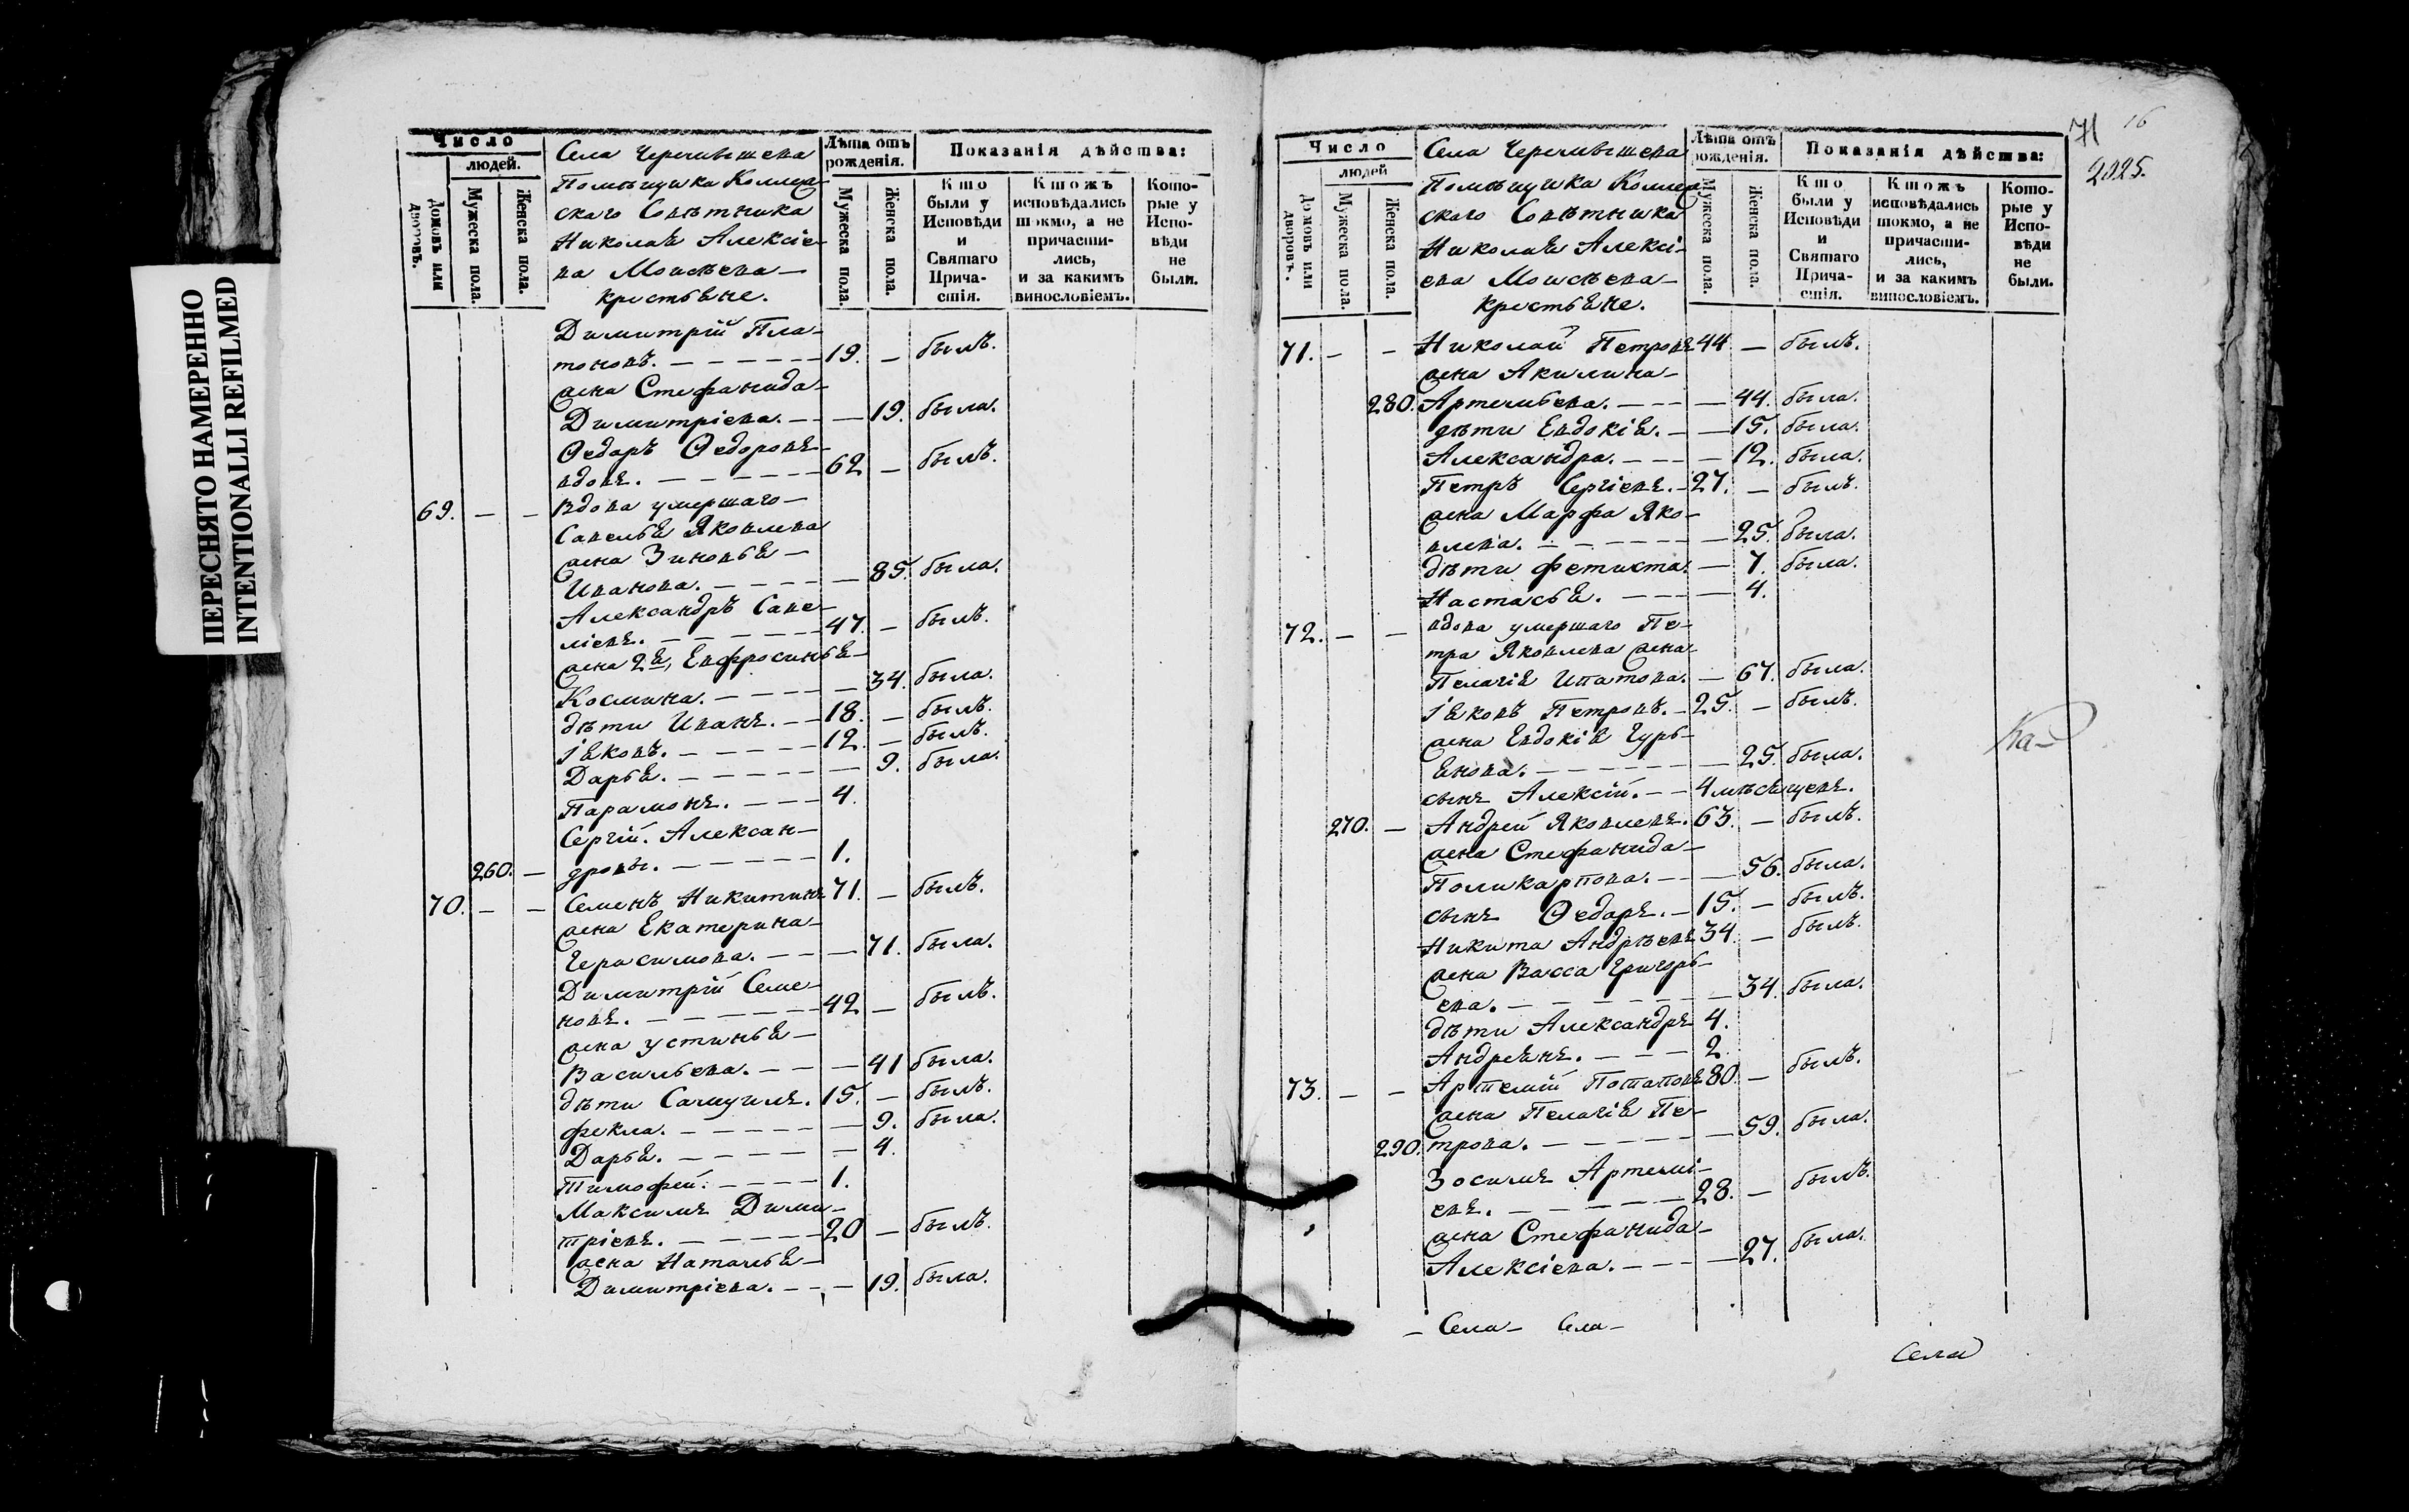 ПЕРЕСНЯТО НАМЕРЕННО
INTENTIONALLI REFILMED
Число
людей.
Домовъ или дворовъ.
Мужеска пола.
Женска пола.
Села Черемышева
Помѣщика Коллеж-
скаго Совѣтника
Николая Алексіе-
ва Моисѣева
крестьяне.
Лѣта отъ рожденія.
Мужеска пола.
Женска пола.
Показанія дѣйства:
Кто были у Исповѣди и Святаго Прича-стія.
Ктожъ исповѣдались токмо, а не причасти-лись, и за какимъ винословіемъ.
Кото-рые у Испо-вѣди не были.
Димитрій Пла-
тоновъ. 19. — былъ.
жена Стефанида
Димитріева. — 19. была.
Ѳедоръ Ѳедоровъ
вдовъ. 62 — былъ.
69. — — Вдова умершаго
Савелья Яковлева
жена Зиновья
Иванова. — 85. была.
Александръ Саве-
ліевъ. 47. — былъ.
жена 2я, Евфросинья
Космина. — 34. была.
дѣти Иванъ. 18. — былъ.
Іяковъ. 12. — былъ.
Дарья. — 9. была.
Парамонъ. 4.
Сергій. Алексан-
260. — дровы. 1.
70. — — Семенъ Никитинъ 71. — былъ.
жена Екатерина
Герасимова. — 71. была.
Димитрій Семе-
новъ. 42 — былъ.
жена устинья
Васильева. — 41 была.
дѣти Самуилъ. 15. — былъ.
фекла. — 9. была.
Дарья. — 4.
Тимофей. 1.
Максимъ Дими-
тріевъ. 20 — былъ.
жена Наталья
Димитріева. — 19. была.
71 16
2025.
Число
людей
Домовъ или дворовъ.
Мужеска пола.
Женска пола.
Села Черемышева
Помѣщика Коллеж-
скаго Совѣтника
Николая Алексі-
ева Моисѣева
крестьяне.
Лѣта отъ рожденія.
Мужеска пола.
Женска пола.
Показанія дѣйства:
Кто были у Исповѣди и Святаго Прича-стія.
Ктожъ исповѣдались токмо, а не причасти-лись, и за какимъ винословіемъ.
Кото-рые у Испо-вѣди не были.
71. — — Николай Петровъ 44 — былъ.
жена Акилина
280. Артемьева. — 44. была.
дѣти Евдокія. — 15. была.
Александра. — 12. была.
Петръ Сергіевъ. 27. — былъ.
жена Марфа Яко-
влева. — 25. была.
дѣти фетиста. — 7. была.
Настасья. — 4.
72. — — вдова умершаго Пе-
тра Яковлева жена
Пелагія Ипатова. — 67. была.
Іяковъ Петровъ. 25. — былъ.
жена Евдокія Гурь-
янова. — 25. была.
сынъ Алексій. 4 мѣсяцевъ.
270. — Андрей Яковлевъ. 63. — былъ.
жена Стефанида
Поликарпова. — 56. была.
сынъ Ѳедоръ. 15. — былъ.
Никита Андрѣевъ 34. — былъ.
жена Васса Григорь-
ева. — 34. была.
дѣти Александръ 4.
Андреянъ. 2.
73. — — Артемій Потаповъ 80. — былъ.
жена Пелагія Пе-
290. трова. — 59. была.
Зосимъ Артемі-
евъ. 28. — былъ.
жена Стефанида
Алексіева. — 27. была.
Ка-
Села Села
Села